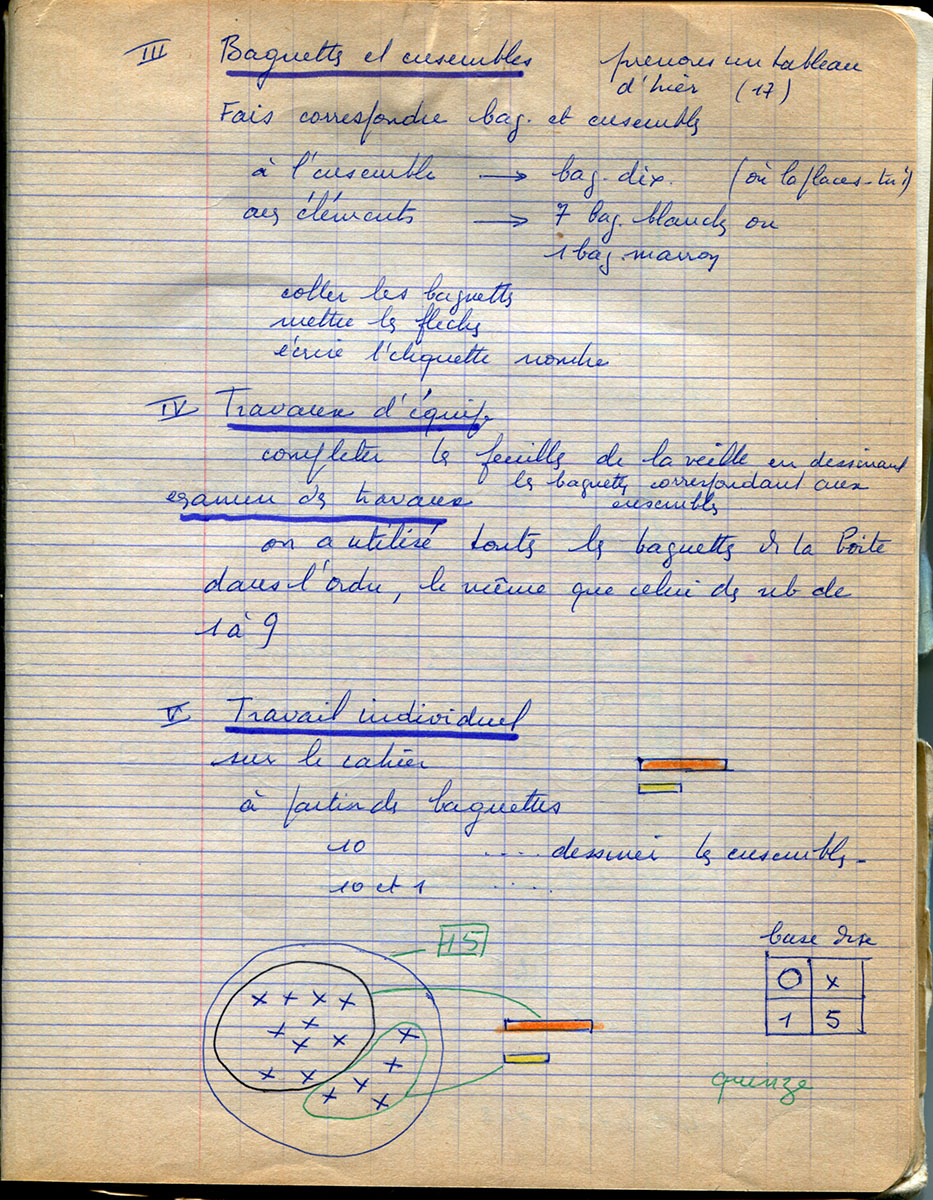 III Baguettes et ensembles prenons un tableau
d'hier (17)
Fais correspondre bag. et ensembles
à l'ensemble → bag. dix. (où la places-tu?)
aux éléments → 7 bag. blanches ou
1 bag. marron
coller les baguettes
mettre les flèches
écrire l'étiquette nombre
IV Travaux d'équipe
compléter les feuilles de la veille en dessinant
les baguettes correspondant aux
examen des travaux ensembles
on a utilisé toutes les baguettes de la boîte
dans l'ordre, le même que celui des nb de
1 à 9
V Travail individuel
sur le cahier
à partir de baguettes
10 .... dessiner les ensembles_
10 et 1 .....
15
base dix
O x
1 5
quinze